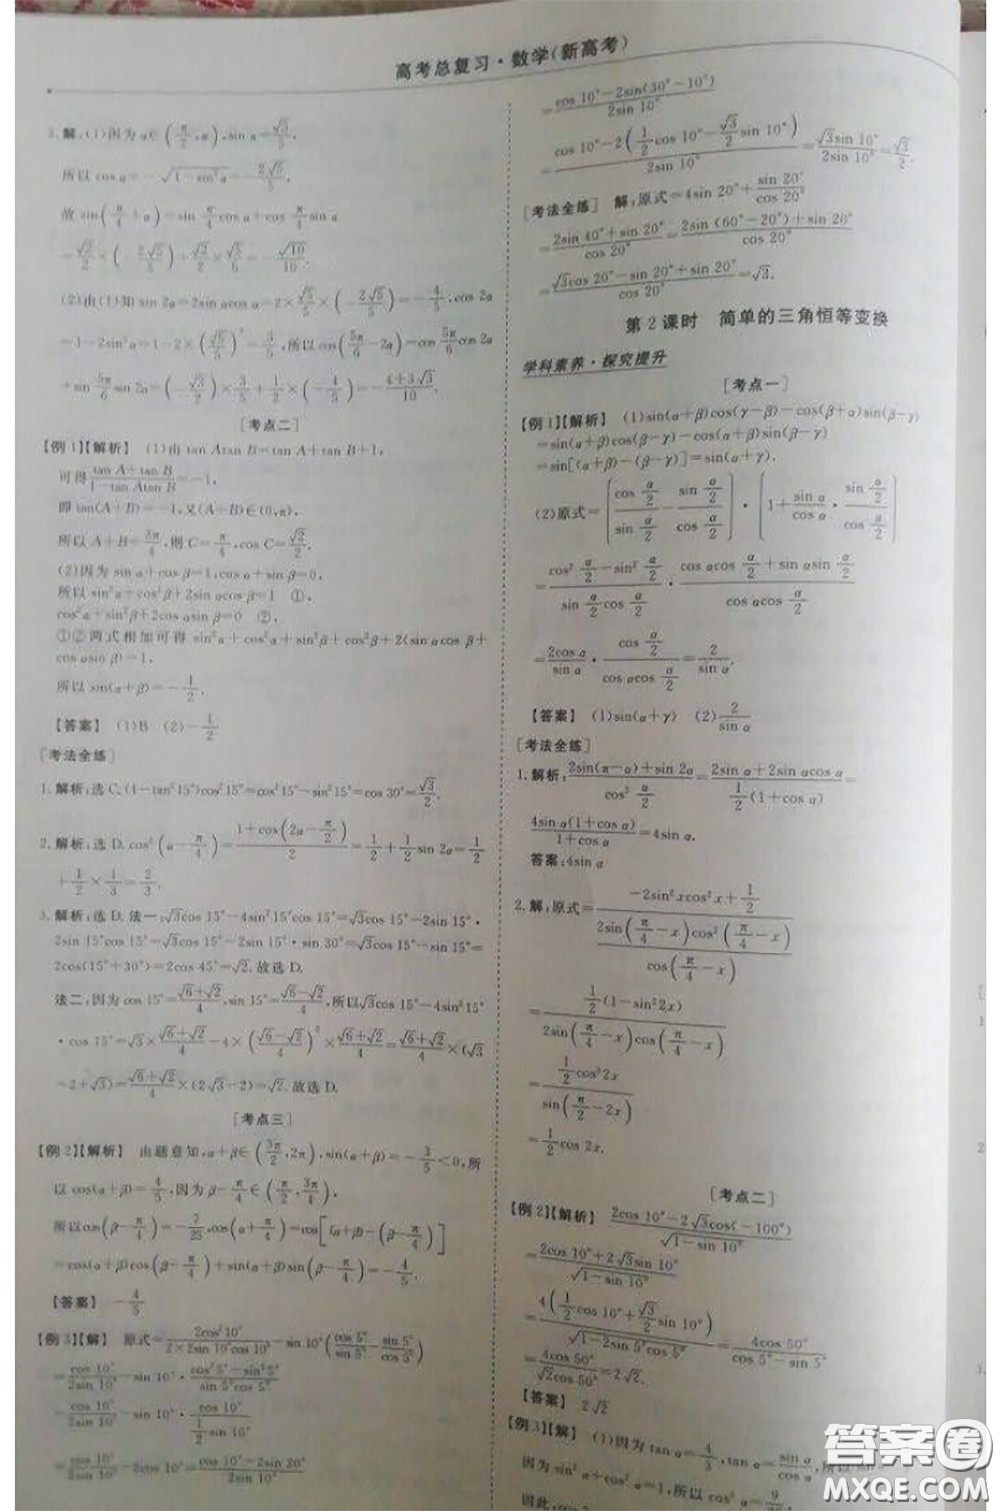 高考总复习·数学(新高考)
3.解:(1)因为α∈(π/2,π),sin α=√5/5,
所以 cos α=-√(1-sin²α)=-2√5/5.
故 sin(π/4+α)=sin π/4 cos α+cos π/4 sin α
=√2/2×(-2√5/5)+√2/2×√5/5=-√10/10.
(2)由(1)知 sin 2α=2sin αcos α=2×√5/5×(-2√5/5)=-4/5,cos 2α
=1-2sin²α=1-2×(√5/5)²=3/5,所以cos(5π/6-2α)=cos 5π/6 cos 2α
+sin 5π/6 sin 2α=(-√3/2)×3/5+1/2×(-4/5)=-(4+3√3)/10.
[考点二]
【例1】【解析】 (1)由 tan Atan B=tan A+tan B+1,
可得(tan A+tan B)/(1-tan Atan B)=-1,
即 tan(A+B)=-1,又(A+B)∈(0,π),
所以 A+B=3π/4,则 C=π/4,cos C=√2/2.
(2)因为 sin α+cos β=1,cos α+sin β=0,
所以 sin²α+cos²β+2sin αcos β=1 ①,
cos²α+sin²β+2cos αsin β=0 ②,
①②两式相加可得 sin²α+cos²α+sin²β+cos²β+2(sin αcos β+
cos αsin β)=1,
所以 sin(α+β)=-1/2.
【答案】 (1)B (2)-1/2
[考法全练]
1.解析:选 C.(1-tan²15°)cos²15°=cos²15°-sin²15°=cos 30°=√3/2.
2.解析:选 D.cos²(α-π/4)=(1+cos(2α-π/2))/2=1/2+1/2 sin 2α=1/2
+1/2×1/3=2/3.
3.解析:选 D.法一:√3cos 15°-4sin²15°cos 15°=√3cos 15°-2sin 15°·
2sin 15°cos 15°=√3cos 15°-2sin 15°·sin 30°=√3cos 15°-sin 15°=
2cos(15°+30°)=2cos 45°=√2.故选 D.
法二:因为 cos 15°=(√6+√2)/4,sin 15°=(√6-√2)/4,所以√3cos 15°-4sin²15°
·cos 15°=√3×(√6+√2)/4-4×((√6-√2)/4)²×(√6+√2)/4=(√6+√2)/4×(√3
-2+√3)=(√6+√2)/4×(2√3-2)=√2.故选 D.
[考点三]
【例2】【解析】 由题意知,α+β∈(3π/2,2π),sin(α+β)=-3/5<0,所
以 cos(α+β)=4/5,因为β-π/4∈(π/2,3π/4),
所以cos(β-π/4)=-7/25,cos(α+π/4)=cos[(α+β)-(β-π/4)]
=cos(α+β)cos(β-π/4)+sin(α+β)sin(β-π/4)=-4/5.
【答案】 -4/5
【例3】【解】 原式=2cos²10°/(2×2sin 10°cos 10°)-sin 10°(cos 5°/sin 5°-sin 5°/cos 5°)
=cos 10°/2sin 10°-sin 10°·(cos²5°-sin²5°)/(sin 5°cos 5°)
=cos 10°/2sin 10°-sin 10°·cos 10°/(1/2 sin 10°)
=(cos 10°-2sin 20°)/2sin 10°
=(cos 10°-2sin(30°-10°))/2sin 10°
=(cos 10°-2(1/2 cos 10°-√3/2 sin 10°))/2sin 10°=√3sin 10°/2sin 10°=√3/2.
[考法全练] 解:原式=4sin 20°+sin 20°/cos 20°
=(2sin 40°+sin 20°)/cos 20°=(2sin(60°-20°)+sin 20°)/cos 20°
=(√3cos 20°-sin 20°+sin 20°)/cos 20°=√3.
第2课时 简单的三角恒等变换
学科素养·探究提升
[考点一]
【例1】【解析】 (1)sin(α+β)cos(γ-β)-cos(β+α)sin(β-γ)
=sin(α+β)cos(β-γ)-cos(α+β)sin(β-γ)
=sin[(α+β)-(β-γ)]=sin(α+γ).
(2)原式=(cos α/2 / sin α/2 - sin α/2 / cos α/2)·(1+sin α/cos α·sin α/2 / cos α/2)
=(cos² α/2-sin² α/2)/(sin α/2 cos α/2)·(cos αcos α/2+sin αsin α/2)/(cos αcos α/2)
=2cos α/sin α·cos α/2/(cos αcos α/2)=2/sin α.
【答案】 (1)sin(α+γ) (2)2/sin α
[考法全练]
1.解析:(2sin(π-α)+sin 2α)/cos² α/2=(2sin α+2sin αcos α)/(1/2(1+cos α))=
4sin α(1+cos α)/(1+cos α)=4sin α.
答案:4sin α
2.解:原式=(-2sin²xcos²x+1/2)/(2sin(π/4-x)cos²(π/4-x)/cos(π/4-x))
=1/2(1-sin²2x)/(2sin(π/4-x)cos(π/4-x))
=1/2 cos²2x/sin(π/2-2x)
=1/2 cos 2x.
[考点二]
【例2】【解析】 (2cos 10°-2√3cos(-100°))/√(1-sin 10°)
=(2cos 10°+2√3sin 10°)/√(1-sin 10°)
=4(1/2 cos 10°+√3/2 sin 10°)/√(1-2sin 5°cos 5°)=4cos 50°/(cos 5°-sin 5°)
=4cos 50°/√2cos 50°=2√2.
【答案】 2√2
【例3】【解】 (1)因为 tan α=4/3,tan α=sin α/cos α,所以
因为 sin²α+cos²α=1,
因此,cos
答案圈
MXQE.COM